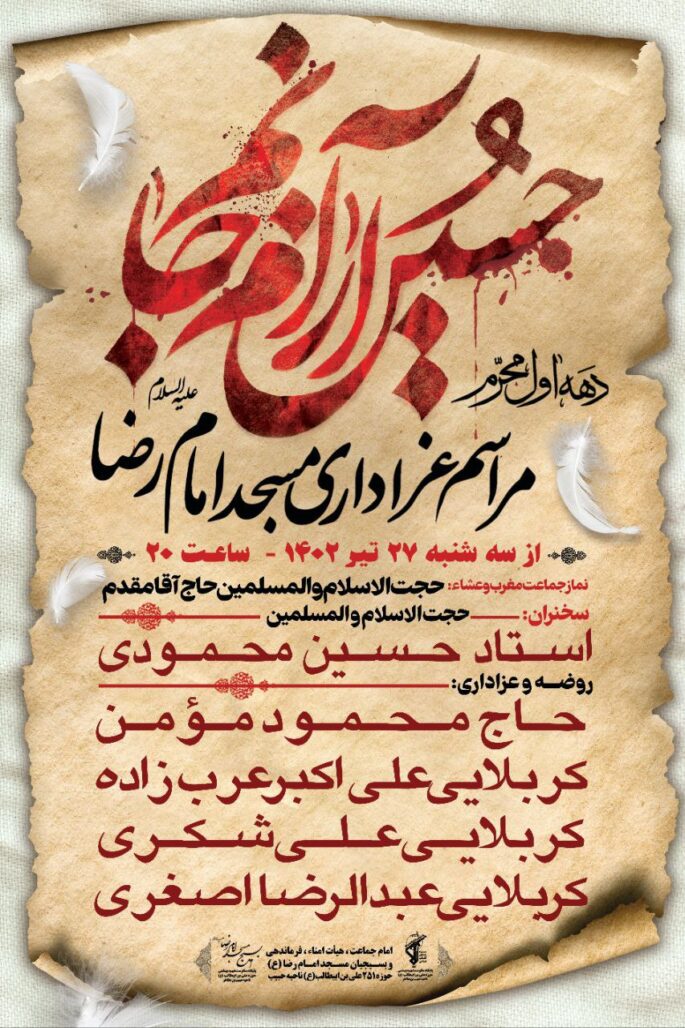 حسین آرام جانم
دهه اول محرّم
علیه السلام
مراسم عزاداری مسجد امام رضا
از سه شنبه ۲۷ تیر ۱۴۰۲ - ساعت ۲۰
نماز جماعت مغرب و عشاء: حجت الاسلام والمسلمین حاج آقا مقدم
سخنران: حجت الاسلام والمسلمین
استاد حسین محمودی
روضه و عزاداری:
حاج محمود مؤمن
کربلایی علی اکبر عرب زاده
کربلایی علی شکری
کربلایی عبدالرضا اصغری
امام جماعت، هیات امناء، فرماندهی
و بسیجیان مسجد امام رضا (ع)
حوزه ۲۵۱ علی بن ابیطالب (ع) ناحیه حبیب